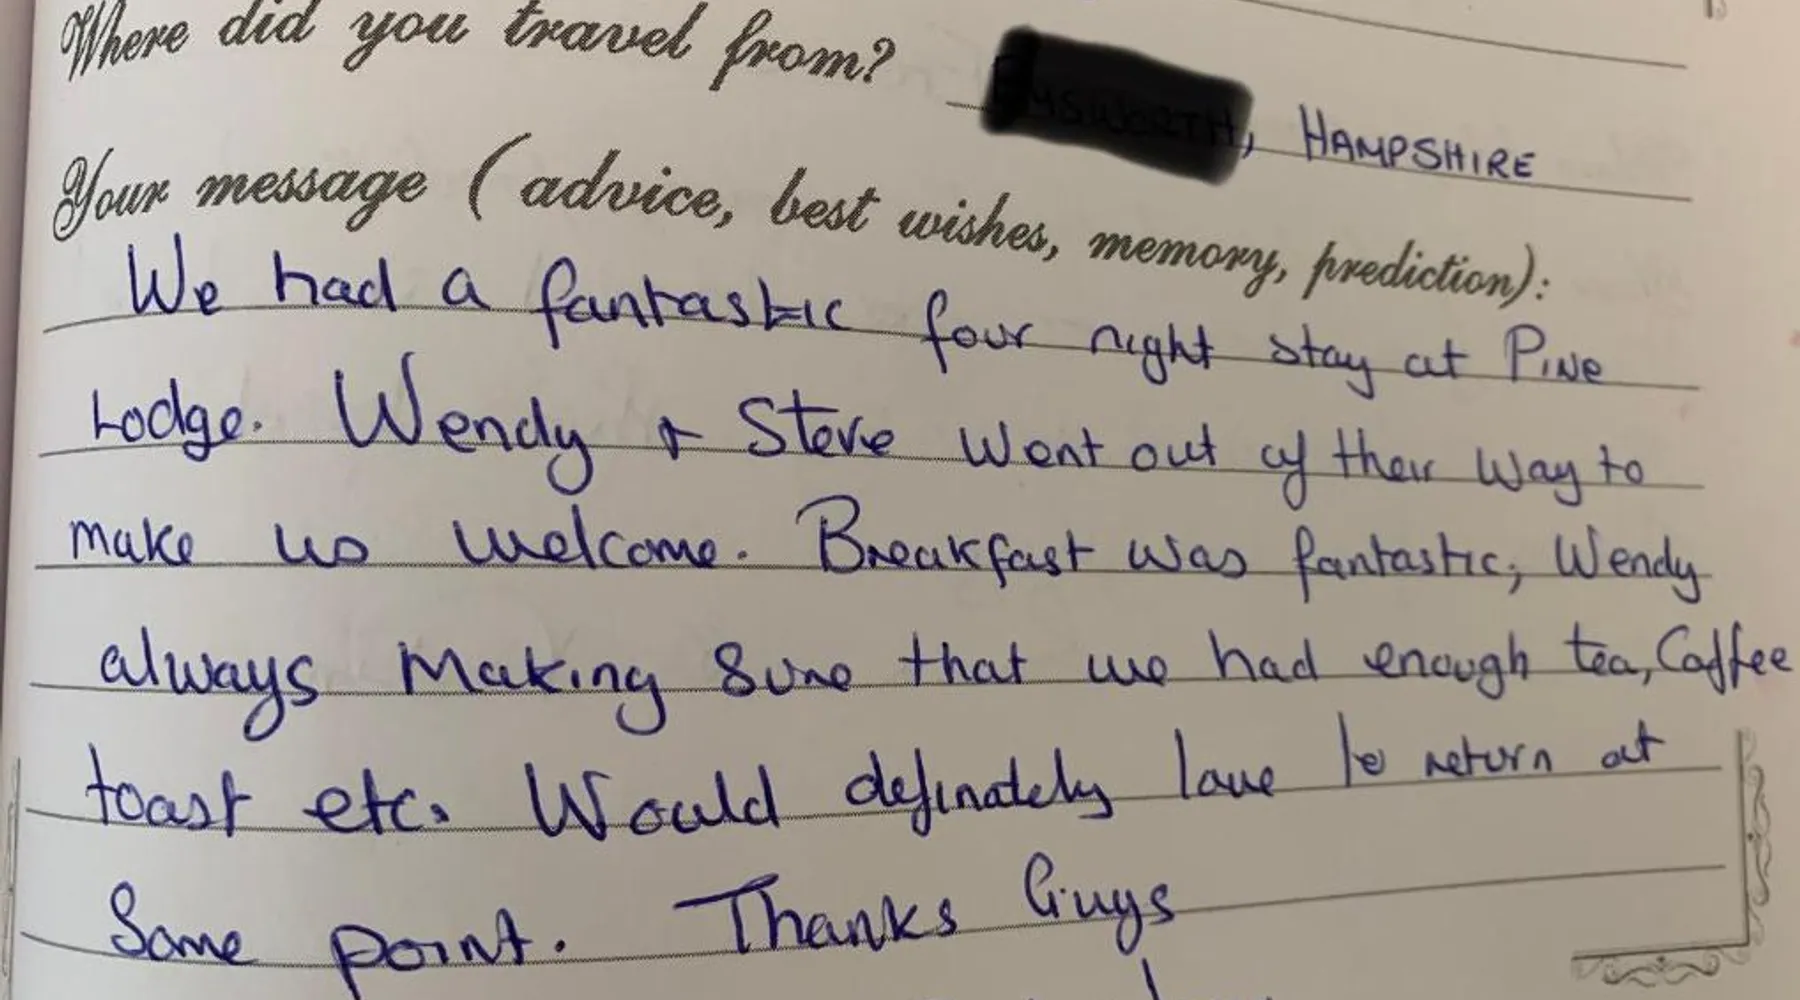 Where did you travel from? , HAMPSHIRE
Your message (advice, best wishes, memory, prediction):
We had a fantastic four night stay at Pine
Lodge. Wendy + Steve went out of their way to
make us welcome. Breakfast was fantastic, Wendy
always making sure that we had enough tea, Coffee
toast etc. Would definately love to return at
Some point. Thanks Guys